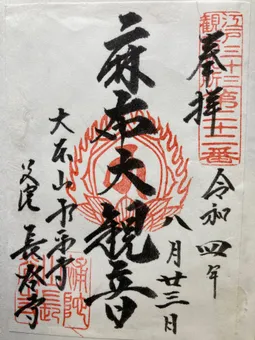 江戸三十三
観音札所
第二十二番
奉拝
令和四年
八月廿三日
麻布大観音
大本山永平寺
別院 長谷寺